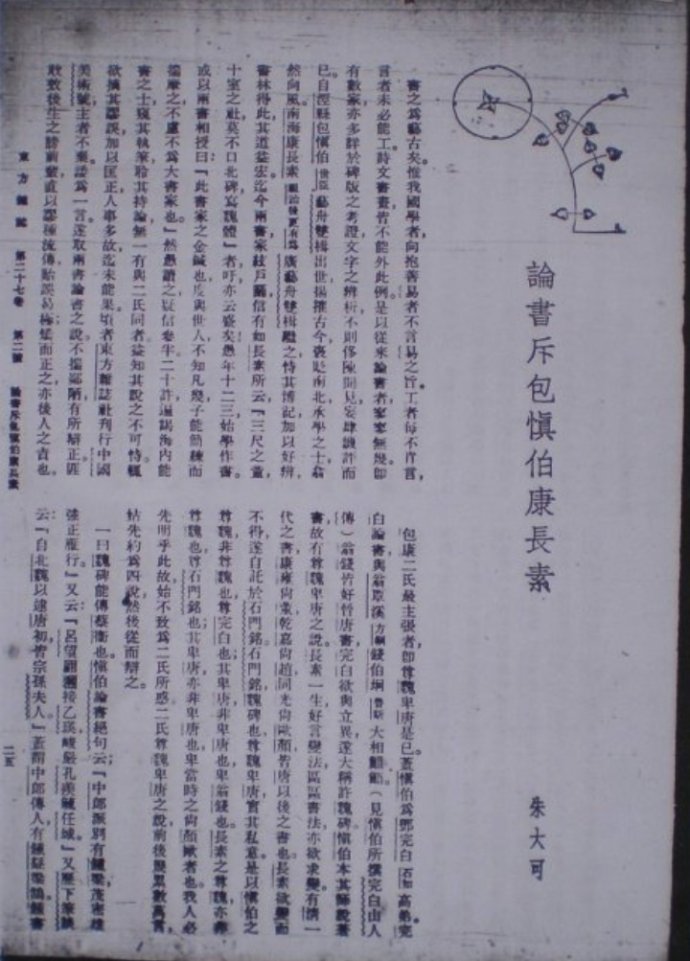 論書斥包慎伯康長素
朱大可
書之爲藝古矣惟我國學者向抱善易者不言易之旨工者每不肯言,
言者未必能工時文書畫皆不能外此例是以從來論書者寥寥無幾卽
有數家亦多詳於碑版之考證文字之辨析不則侈陳聞見妄肆譏評而
已自涇縣包愼伯世臣藝舟雙楫出世揚搉古今褒貶南北承學之士翕
然向風南海康長素祖詒後更有爲廣藝舟雙楫繼之恃其博記加以好辨,
書林得此其道益宏迄今兩書家絃戶誦信有如長素所云『三尺之童
十室之社莫不口北碑寫魏體』者吁亦云盛矣愚年十二三始學作書,
或以兩書相授曰『此書家之金鍼也度與世人不知凡幾子能簡練而
揣摩之不慮不爲大書家也』然愚讀之疑信參半二十許遍謁海內能
書之士窺其執筆聆其持論無一有與二氏同者益知其說之不可恃輒
欲摘其謬誤加以匡正人事多故迄未能果頃者東方雜誌社刊行中國
美術號主者不棄諉爲一言遂取兩書論書之說不揣鄙陋有所辯正匪
敢效後生之謗前輩直以謬種流傳貽誤易
而正之亦後人之責也。
包康二氏最主張者卽尊魏卑唐是已蓋愼伯爲鄧完白石如高弟完
白論書與翁覃溪方綱錢伯坰魯斯大相齟齬(見愼伯所撰完白山人
傳)翁錢皆好晉唐書完白欲與立異遂大稱許魏碑愼伯本其師說著
書故有尊魏卑唐之說長素一生好言變法區區書法亦欲求變有淸一
代之書康雍尙董乾嘉尙趙同光尙歐顏皆唐以後之書也長素欲變而
不得遂自託於石門銘石門銘魏碑也尊魏卑唐實其私意是以愼伯之
尊魏非尊魏也尊完白也其卑唐非卑唐也卑翁錢也長素之尊魏亦非
尊魏也尊石門銘也其卑唐亦非卑唐也卑當時之尙顏歐者也我人必
先明乎此故始不致爲二氏所惑二氏尊魏卑唐之說前後雜累數萬言,
姑先約爲四說然後從而辯之。
一曰魏碑能傳蔡衞也愼伯論書絕句云『中郞派別有鍾梁茂密雄
强正雁行』又云『呂望翩翻接乙瑛峻嚴孔羡毓任城』又歷下筆譚
云『自北魏以逮唐初皆宗孫夫人』蓋謂中郞傳人有鍾繇梁鵠鍾書
東方雜誌 第二十七卷 第二號 論書斥包愼伯康長素
二五